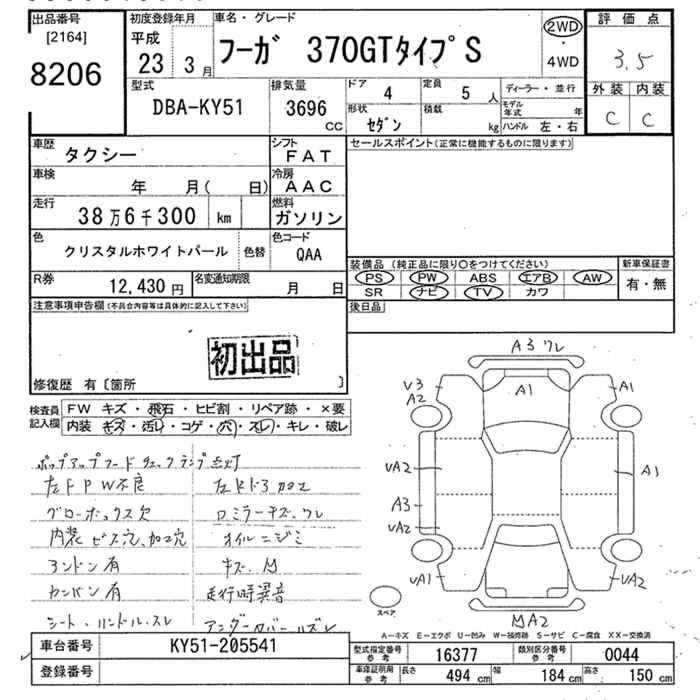 出品番号
[2164]
8206
初度登録年月
平成
23 3月
車名・グレード
フーガ 370GTタイプS
2WD
・
4WD
評価点
3.5
外装 内装
C C
型式
DBA-KY51
排気量
3696
CC
ドア 4
定員 5 人
ディーラー・並行
形状
セダン
積載
kg
モデル年式 年
ハンドル 左・右
車歴
タクシー
シフト
FAT
車検
年 月( 日)
冷房
AAC
走行
38万6千300 km
燃料
ガソリン
色
クリスタルホワイトパール
色替
色コード
QAA
R券
12,430円
名変通知期限
月 日
セールスポイント(正常に機能するものに限ります)
装備品 (純正品に限り○をつけてください)
PS PW ABS エアB AW
SR ナビ TV カワ
新車保証書
有・無
後日品
注意事項申告欄(不具合内容等は具体的に記入して下さい)
初出品
修復歴 有〔箇所 〕
検査員
記入欄
FW キズ・飛石・ヒビ割・リペア跡・×要
内装・キズ・汚レ・コゲ・穴・スレ・キレ・破レ
ポップアップフードチェックランプ点灯
左FPW不良
グローボックス欠
内装ビス穴、加工穴
アンドン有
カンバン有
シート、ハンドル、スレ
左Rドア加工
ロミラーキズ、ワレ
オイルニジミ
キズ、M
走行時異音
アンダーカバーハズレ
A3ワレ
A1
V3
A2
A1
UA2
A1
A3
UA2
UA1
UA2
スペア
MA2
A-キズ E-エクボ U-凹み W-補修跡 S-サビ C-腐食 XX-交換済
車台番号
KY51-205541
登録番号
型式指定番号
参考
16377
類別区分番号
参考
0044
車庫証明用
参考
長さ 494 cm
幅 184 cm
高さ 150 cm